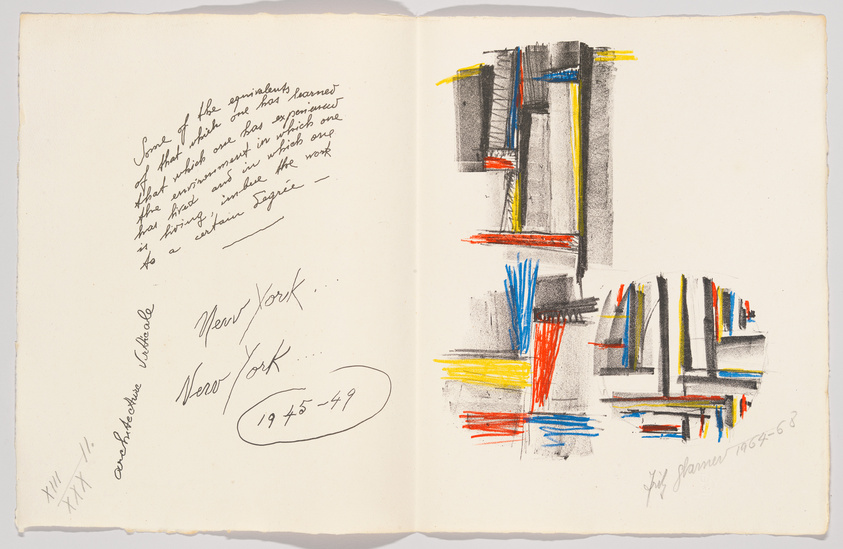 Some of the equivalents
of that which one has learned
that which one has experienced
the environment in which one
has lived and in which one
is living, imbue the work
to a certain degrée —
New York ...
New York ....
1945-49
architecture Verticale
XIII
XXX 11.
Fritz Glarner 1964-68